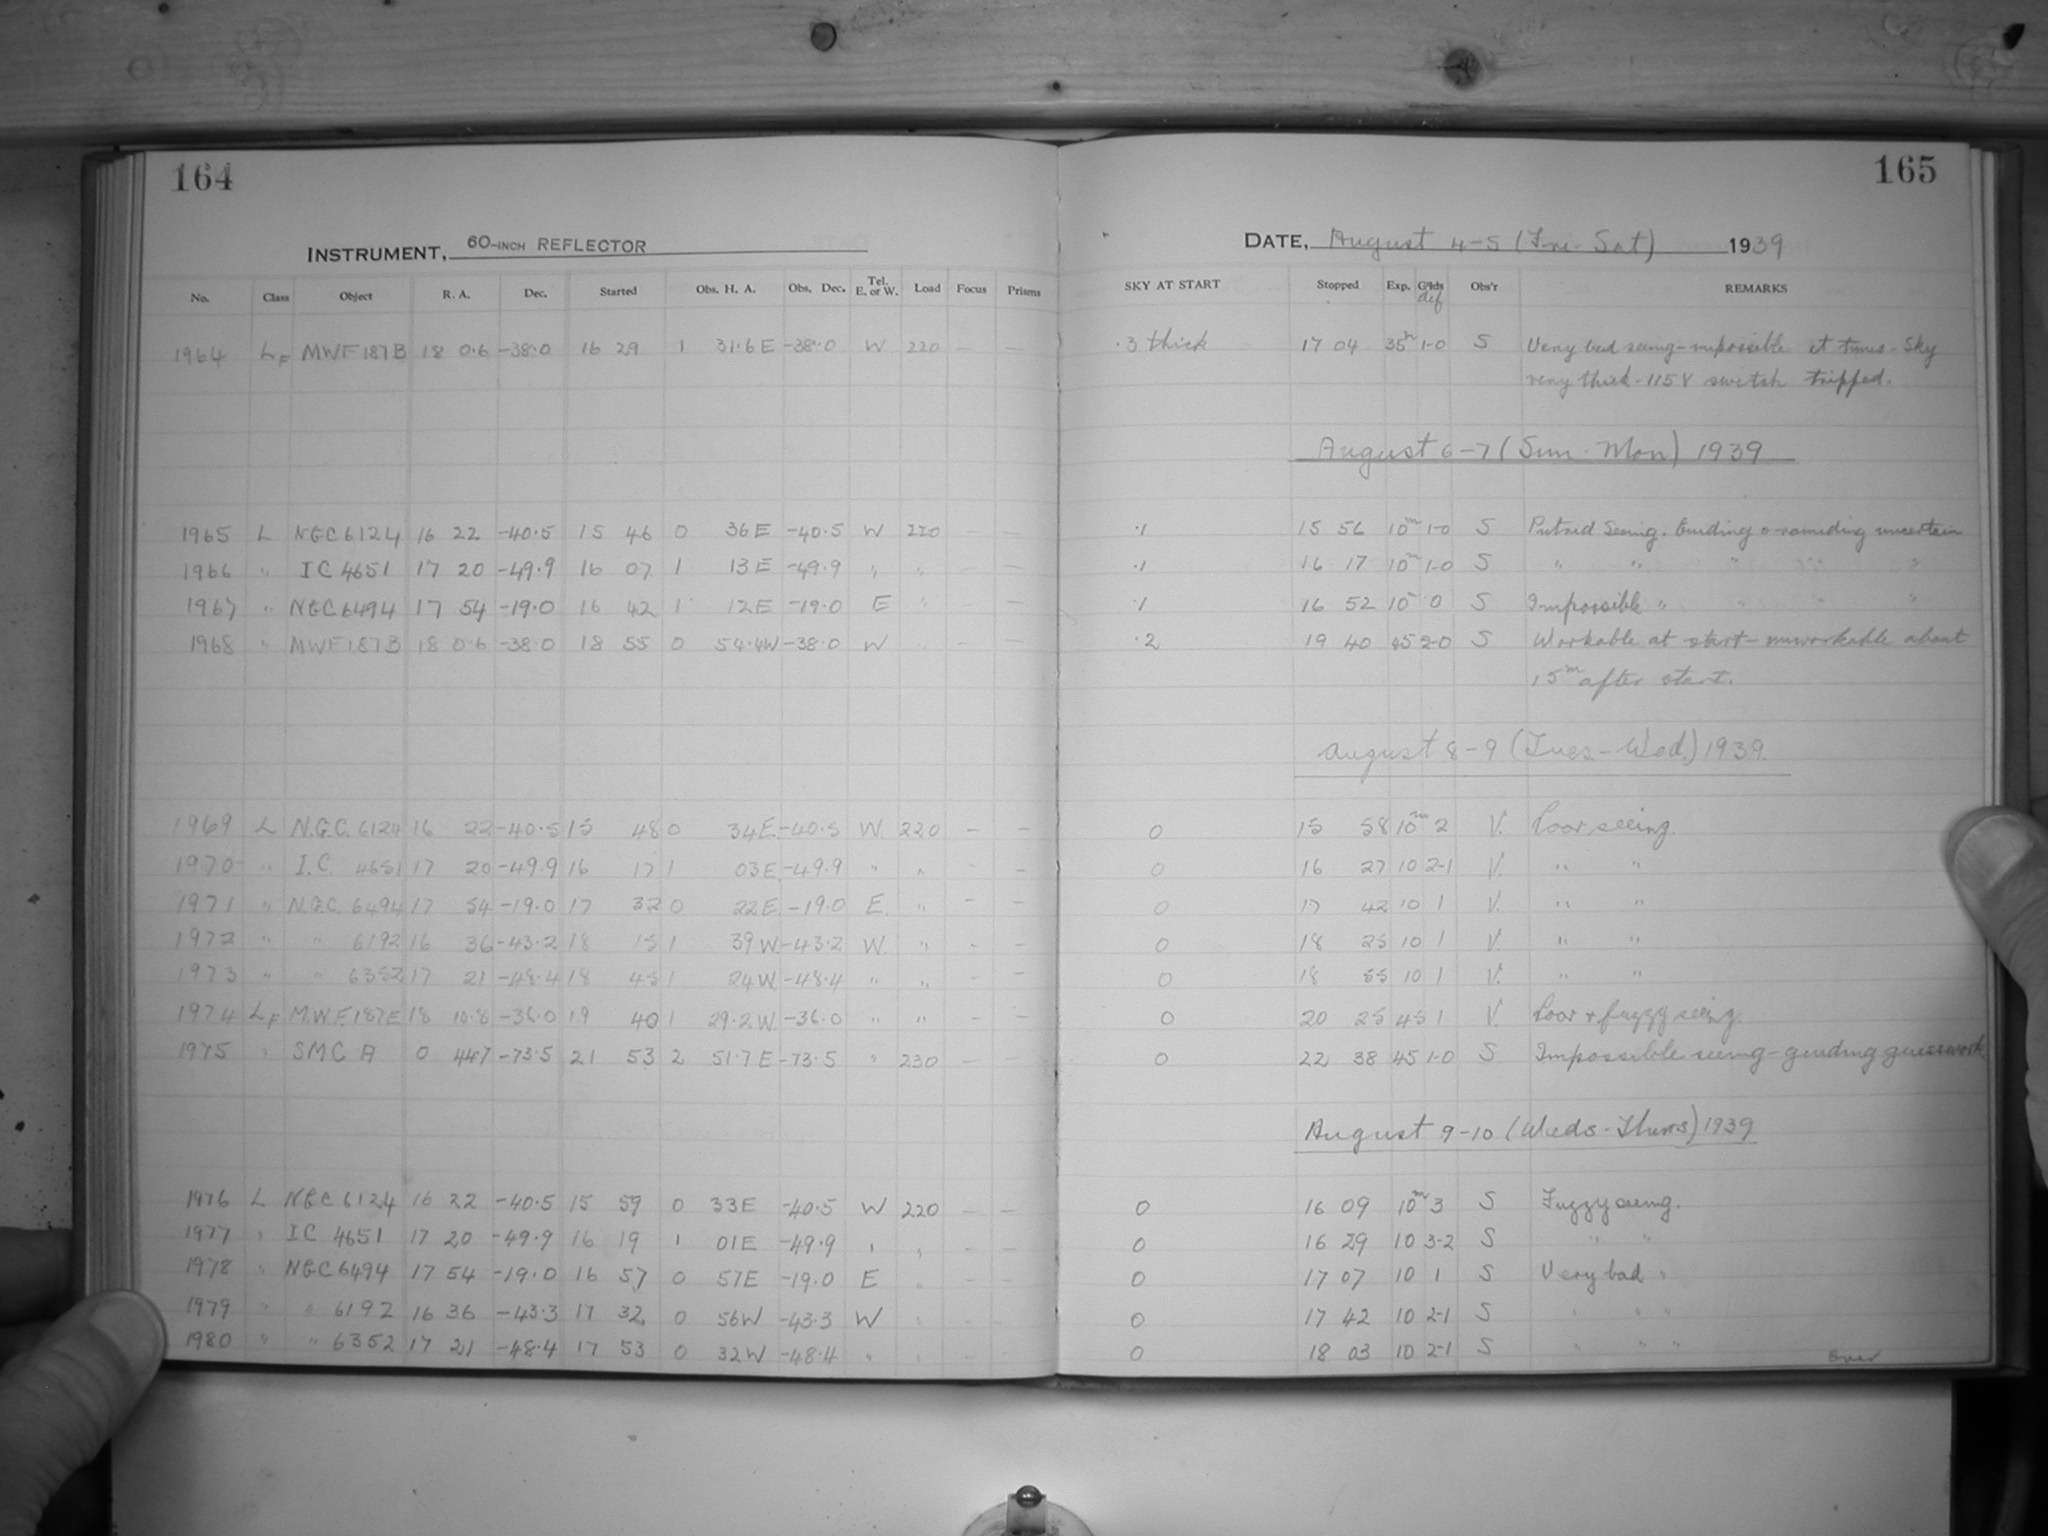 164
165
INSTRUMENT, 60-INCH REFLECTOR
DATE, August 4-5 (Fri-Sat) 1939
No. Class Object R. A. Dec. Started Obs. H. A. Obs. Dec. Tel. E. or W. Load Focus Prisms SKY AT START Stopped Exp. G'lds def Obs'r REMARKS
1964 LF MWF187B 18 0.6 -38.0 16 29 1 31.6E -38.0 W 220 — — .3 thick 17 04 35m 1-0 S Very bad seeing - impossible at times - Sky
very thick - 115V switch tripped.
August 6-7 (Sun-Mon) 1939
1965 L NGC6124 16 22 -40.5 15 46 0 36E -40.5 W 220 — — .1 15 56 10m 1-0 S Putrid Seeing. Guiding & rounding uncertain
1966 " IC 4651 17 20 -49.9 16 07 1 13E -49.9 " " - — .1 16 17 10m 1-0 S " " " " "
1967 " NGC6494 17 54 -19.0 16 42 1 12E -19.0 E " - — .1 16 52 10m 0 S Impossible " " " "
1968 " MWF187B 18 0.6 -38.0 18 55 0 54.4W -38.0 W " - — .2 19 40 45 2-0 S Workable at start - unworkable about
15m after start.
August 8-9 (Tues.-Wed.) 1939.
1969 L N.G.C. 6124 16 22 -40.5 15 48 0 34E. -40.5 W. 220 - - 0 15 58 10m 2 V. Poor seeing.
1970 " I.C. 4651 17 20 -49.9 16 17 1 03E. -49.9 " " - 0 16 27 10 2-1 V. " "
1971 " N.G.C. 6494 17 54 -19.0 17 32 0 22E. -19.0 E. " - - 0 17 42 10 1 V. " "
1972 " " 6192 16 36 -43.2 18 15 1 39W. -43.2 W. " - - 0 18 25 10 1 V. " "
1973 " " 6352 17 21 -48.4 18 45 1 24W. -48.4 " " - - 0 18 55 10 1 V. " "
1974 LF M.W.F.187E 18 10.8 -36.0 19 40 1 29.2W. -36.0 " " - - 0 20 25 45 1 V. Poor & fuzzy seeing.
1975 " SMC A 0 447 -73.5 21 53 2 51.7E -73.5 " 230 — — 0 22 38 45 1-0 S Impossible seeing - guiding guesswork.
August 9-10 (Weds-Thurs) 1939
1976 L NGC6124 16 22 -40.5 15 59 0 33E -40.5 W 220 - — 0 16 09 10m 3 S Fuzzy seeing.
1977 " IC 4651 17 20 -49.9 16 19 1 01E -49.9 " " - — 0 16 29 10 3-2 S " "
1978 " NGC6494 17 54 -19.0 16 57 0 57E -19.0 E " - - 0 17 07 10 1 S Very bad "
1979 " " 6192 16 36 -43.3 17 32 0 56W -43.3 W " - - 0 17 42 10 2-1 S " " "
1980 " " 6352 17 21 -48.4 17 53 0 32W -48.4 " " - - 0 18 03 10 2-1 S " " "
Over